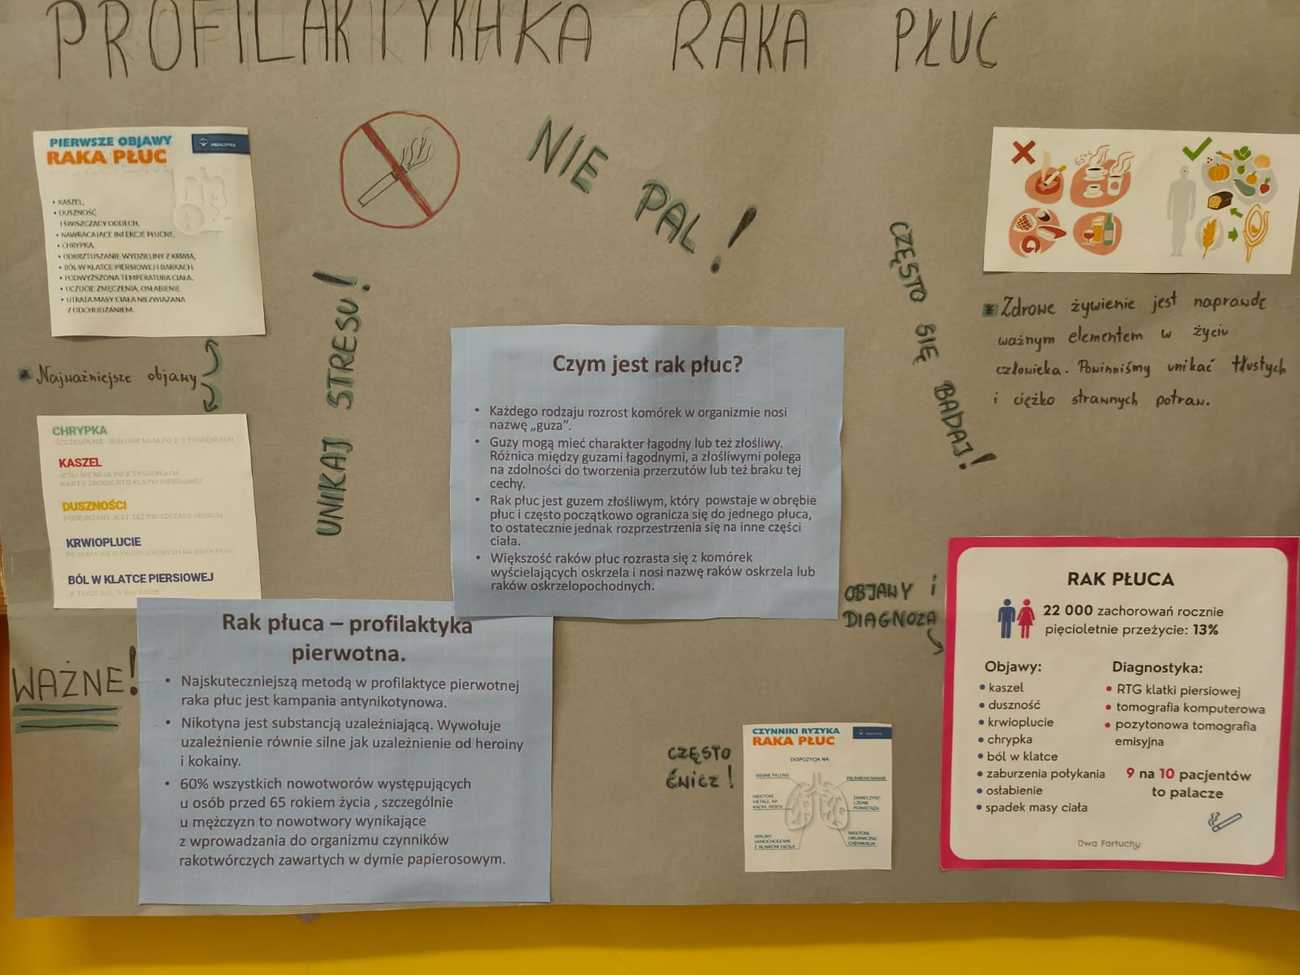 PROFILAKTYKHKA RAKA PŁUC
PIERWSZE OBJAWY
RAKA PŁUC
• KASZEL,
• DUSZNOŚĆ
I ŚWISZCZĄCY ODDECH,
• NAWRACAJĄCE INFEKCJE PŁUCNE,
• CHRYPKA,
• ODKRZTUSZANIE WYDZIELINY Z KRWIĄ,
• BÓL W KLATCE PIERSIOWEJ I BARKACH,
• PODWYŻSZONA TEMPERATURA CIAŁA,
• UCZUCIE ZMĘCZENIA, OSŁABIENIE
• UTRATA MASY CIAŁA NIEZWIĄZANA
Z ODCHUDZANIEM.
NIE PAL!
UNIKAJ STRESU!
CZĘSTO SIĘ BADAJ!
Zdrowe żywienie jest naprawdę
ważnym elementem w życiu
człowieka. Powinniśmy unikać tłustych
i ciężko strawnych potraw.
Najważniejsze objawy
CHRYPKA
KASZEL
DUSZNOŚCI
KRWIOPLUCIE
BÓL W KLATCE PIERSIOWEJ
Czym jest rak płuc?
• Każdego rodzaju rozrost komórek w organizmie nosi
nazwę „guza".
• Guzy mogą mieć charakter łagodny lub też złośliwy.
Różnica między guzami łagodnymi, a złośliwymi polega
na zdolności do tworzenia przerzutów lub też braku tej
cechy.
• Rak płuc jest guzem złośliwym, który powstaje w obrębie
płuc i często początkowo ogranicza się do jednego płuca,
to ostatecznie jednak rozprzestrzenia się na inne części
ciała.
• Większość raków płuc rozrasta się z komórek
wyścielających oskrzela i nosi nazwę raków oskrzela lub
raków oskrzelopochodnych.
WAŻNE!
Rak płuca – profilaktyka
pierwotna.
• Najskuteczniejszą metodą w profilaktyce pierwotnej
raka płuc jest kampania antynikotynowa.
• Nikotyna jest substancją uzależniającą. Wywołuje
uzależnienie równie silne jak uzależnienie od heroiny
i kokainy.
• 60% wszystkich nowotworów występujących
u osób przed 65 rokiem życia , szczególnie
u mężczyzn to nowotwory wynikające
z wprowadzania do organizmu czynników
rakotwórczych zawartych w dymie papierosowym.
CZĘSTO
ĆWICZ!
CZYNNIKI RYZYKA
RAKA PŁUC
OBJAWY i
DIAGNOZA
RAK PŁUCA
22 000 zachorowań rocznie
pięcioletnie przeżycie: 13%
Objawy:
• kaszel
• duszność
• krwioplucie
• chrypka
• ból w klatce
• zaburzenia połykania
• osłabienie
• spadek masy ciała
Diagnostyka:
• RTG klatki piersiowej
• tomografia komputerowa
• pozytonowa tomografia
emisyjna
9 na 10 pacjentów
to palacze
Dwa Fartuchy